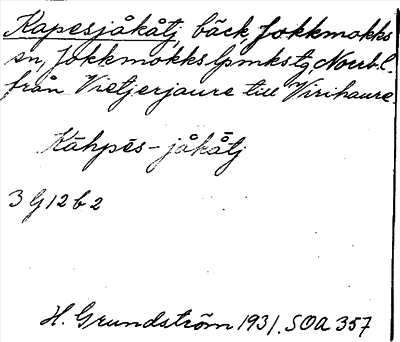 Kapesjåkåtj, bäck, Jokkmokks
sn, Jokkmokks lpmkstg, Norrb.l.
från Vietjerjaure till Virihaure.
Kāhpēs-jåkåtj
3 G 12 b 2
H. Grundström 1931. SOA 357